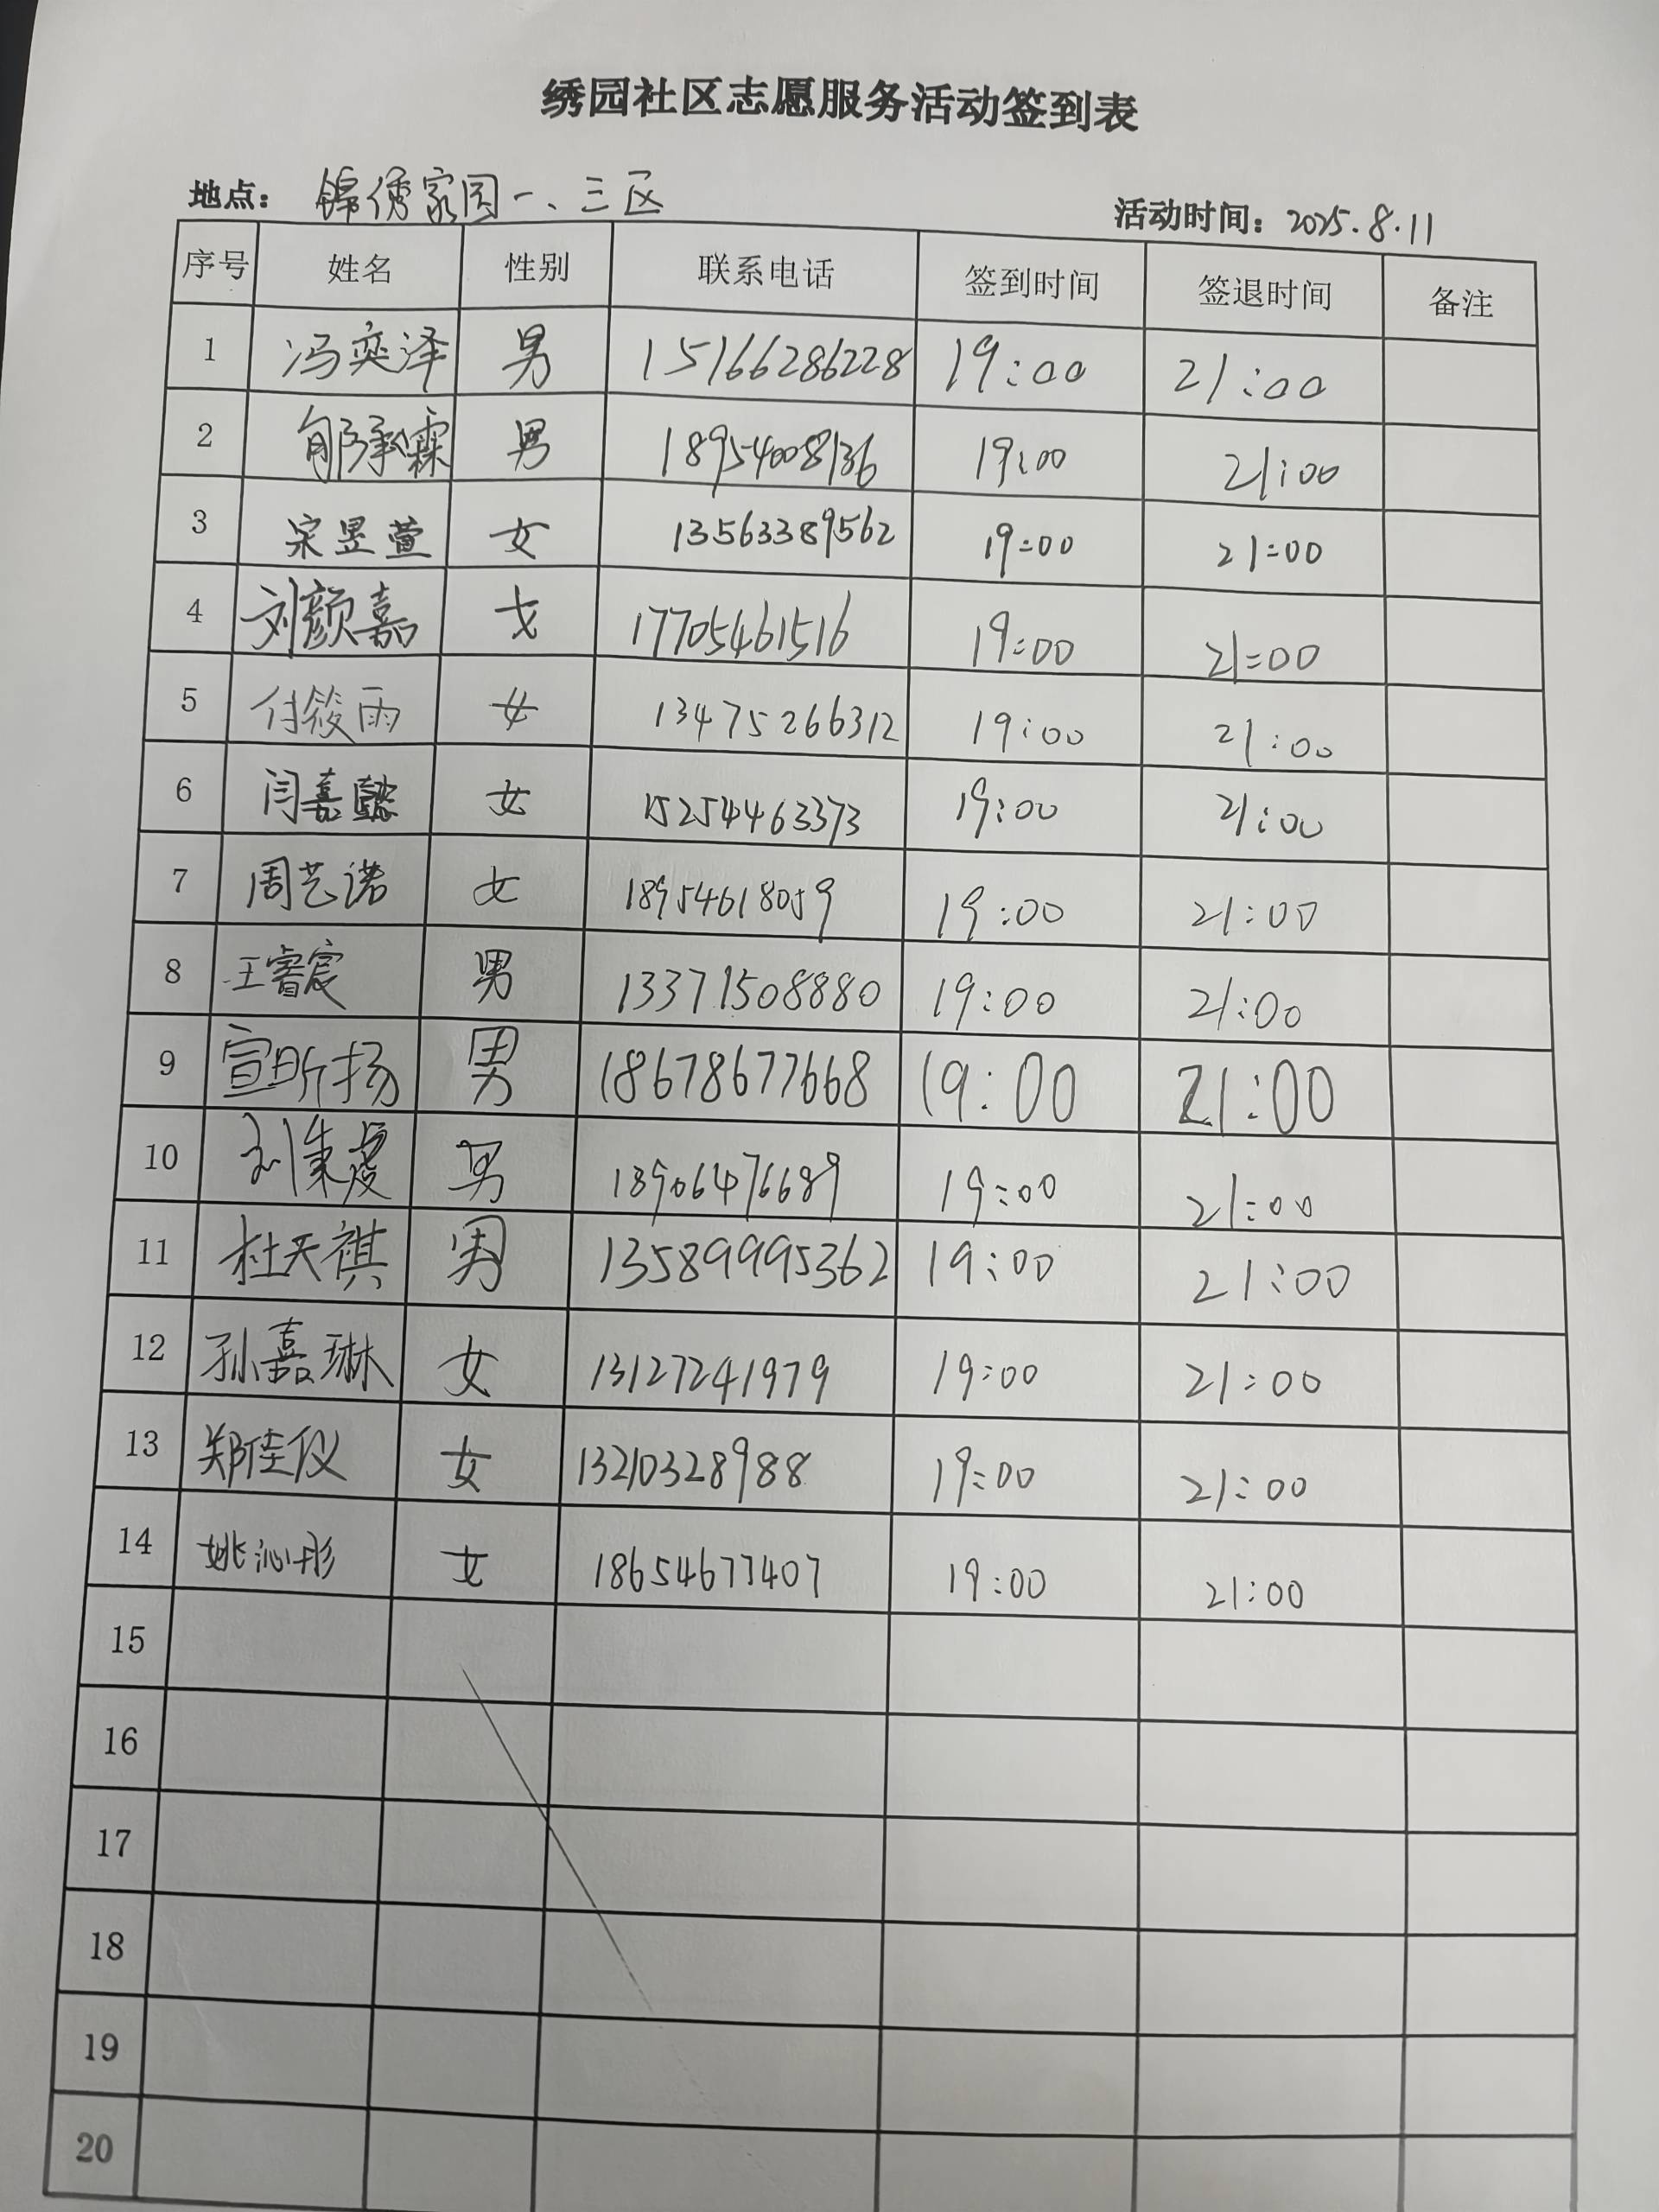 绣园社区志愿服务活动签到表
地点： 锦绣家园一、三区 活动时间：2025.8.11
序号 姓名 性别 联系电话 签到时间 签退时间 备注
1 冯奕泽 男 15166286228 19:00 21:00
2 郇承霖 男 18954008136 19:00 21:00
3 宋昱萱 女 13563389562 19:00 21:00
4 刘颜嘉 女 17705461516 19:00 21:00
5 付筱雨 女 13475266312 19:00 21:00
6 闫嘉懿 女 15254463373 19:00 21:00
7 周艺诺 女 18954618059 19:00 21:00
8 王睿宸 男 13371508880 19:00 21:00
9 宣昕扬 男 18678677668 19:00 21:00
10 刘 男 18906476689 19:00 21:00
11 杜天祺 男 13589995362 19:00 21:00
12 孙嘉琳 女 13127241979 19:00 21:00
13 郑佳仪 女 13210328988 19:00 21:00
14 姚沁彤 女 18654677407 19:00 21:00
15
16
17
18
19
20